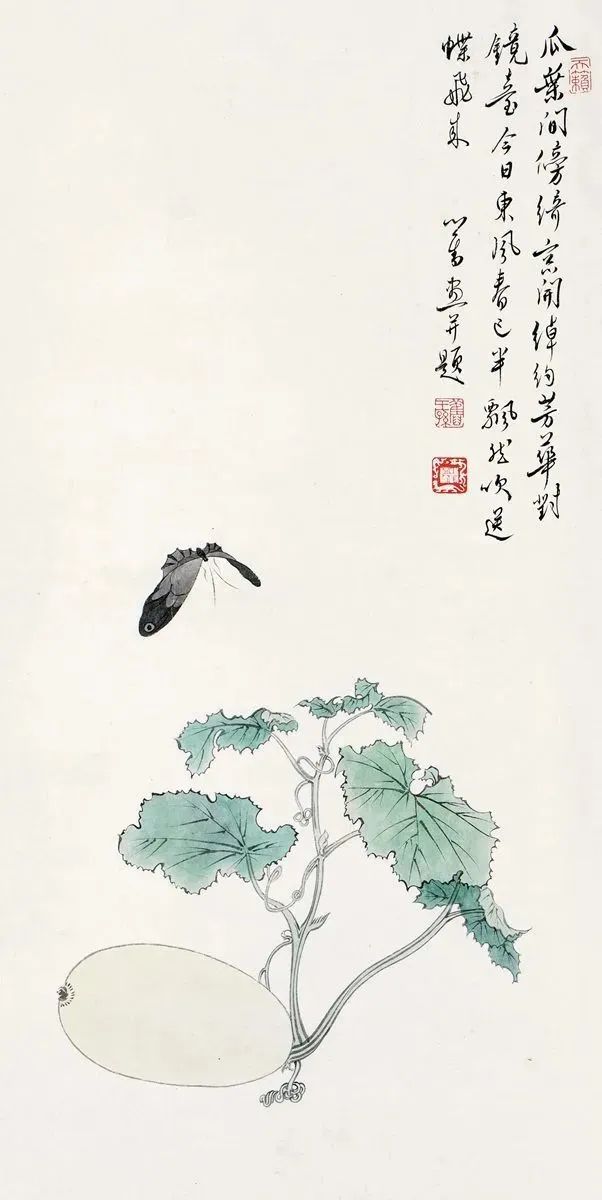 天籟
瓜葉間傍綺窗開綽約芳華對
鏡臺今日東風春已半飄然吹送
蝶飛來 心畬畫并題
舊王孫